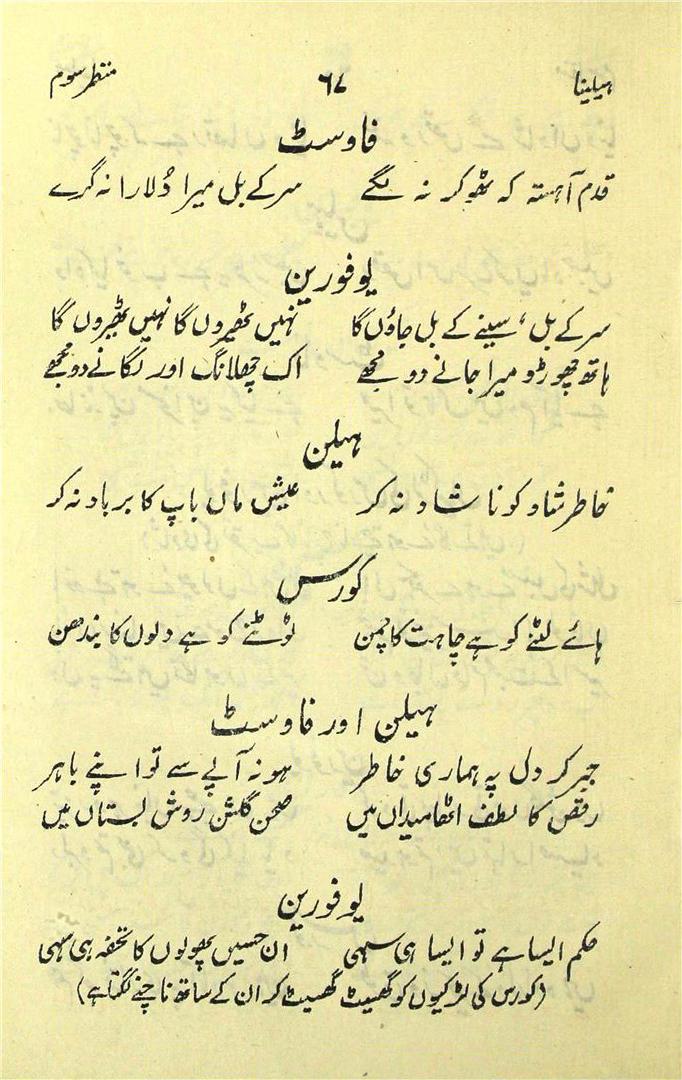 ہیلینا ۶۷ منظر سوم
فاوسٹ
قدم آہستہ کہ ٹھوکر نہ لگے سر کے بل میرا دُلارا نہ گرے
یوفورین
سر کے بل، سینے کے بل جاؤں گا نہیں ٹھیروں گا نہیں ٹھیروں گا
ہاتھ چھوڑو میرا جانے دو مجھے اک چھلانگ اور لگانے دو مجھے
ہیلن
خاطر شاد کو ناشاد نہ کر عیش ماں باپ کا برباد نہ کر
کورس
ہائے لٹنے کو ہے چاہت کا چمن ٹوٹنے کو ہے دلوں کا بندھن
ہیلن اور فاوسٹ
جبر کر دل پہ ہماری خاطر ہو نہ آپے سے تو اپنے باہر
رقص کا لطف اٹھا میداں میں صحن گلشن روش بستاں میں
یوفورین
حکم ایسا ہے تو ایسا ہی سہی ان حسیں پھولوں کا تحفہ ہی سہی
(کورس کی لڑکیوں کو گھسیٹ گھسیٹ کر ان کے ساتھ ناچنے لگتا ہے)